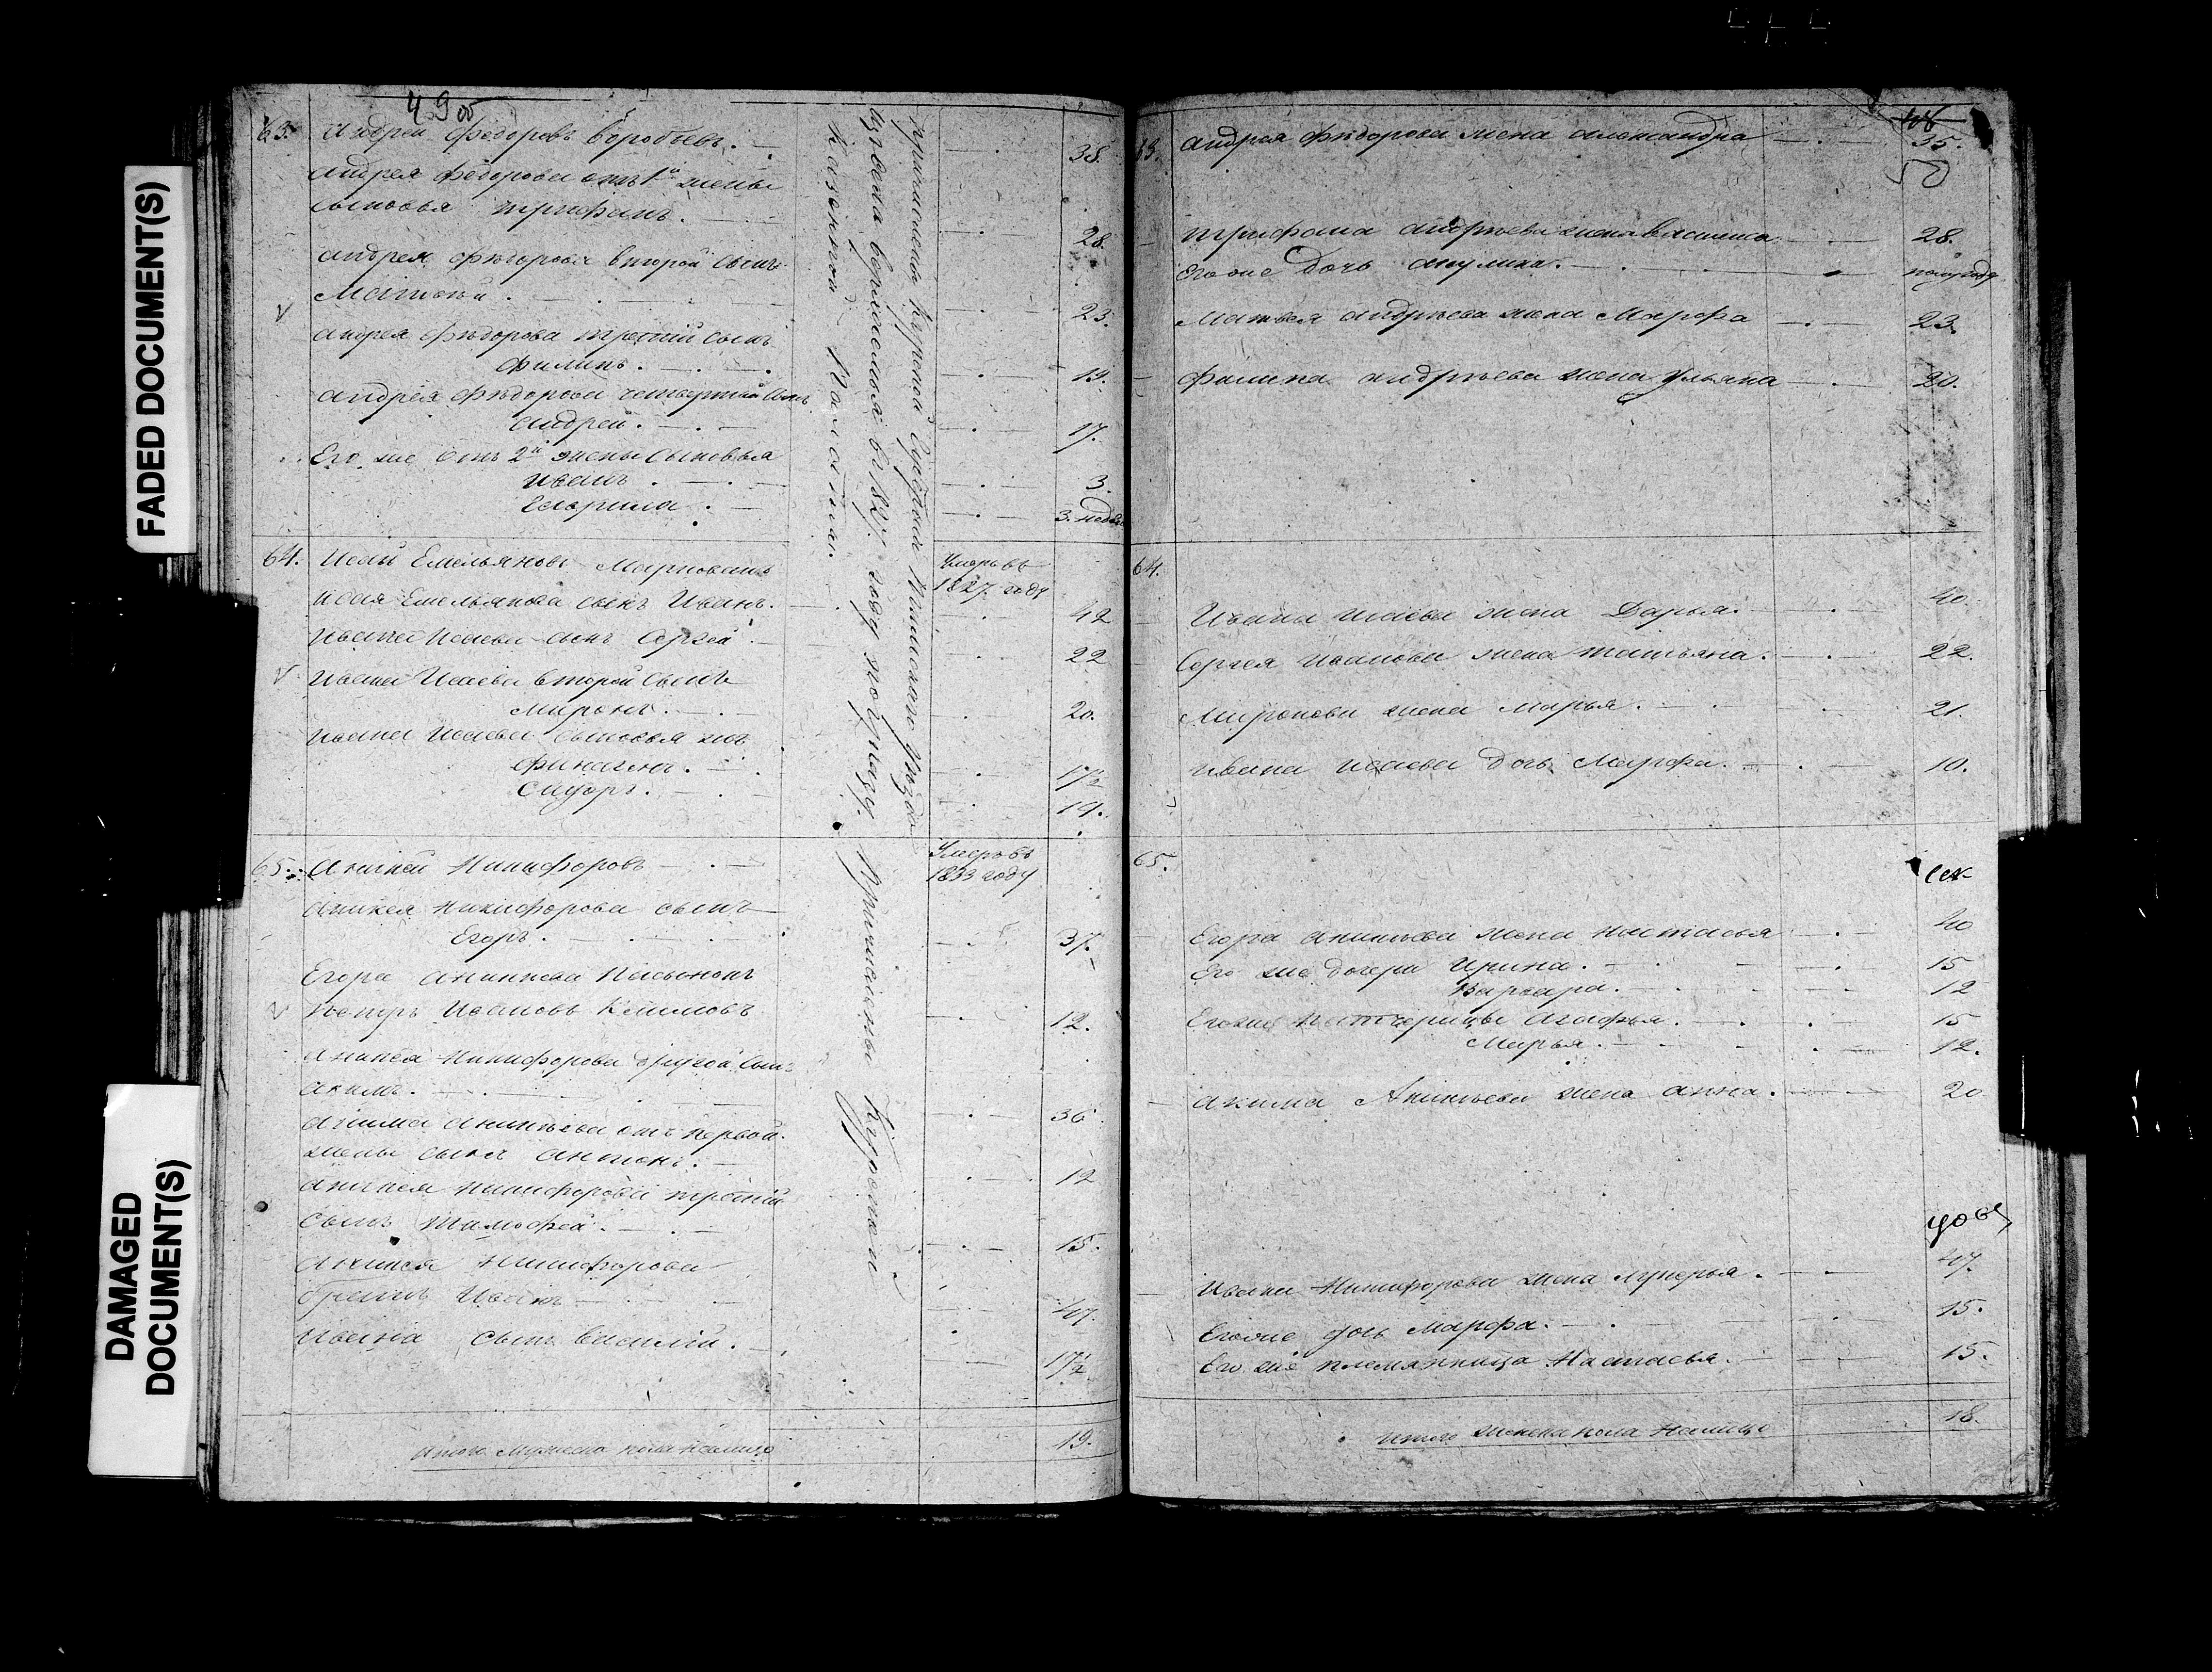 FADED DOCUMENTS(S)
DAMAGED
DOCUMENT(S)
49 об
63. Андрей Федоровъ Воробьевъ. 38.
Андрея Федорова отъ 1й жены
сыновья Трифанъ. 28.
Андрея Фѣдорова второй сынъ
Матвѣй. 23.
Андрея Фѣдорова третий сынъ
Филипъ. 19.
Андрея Фѣдорова четвертый сынъ
Андрей. 17.
Его же отъ 2й жены сыновья
Иванъ. 3.
3. недел
64. Исай Емельяновъ Умеръ въ
1827. году
Исая Емельянова сынъ Иванъ. 42
Ивана Исаева сынъ Сергей 22
Ивана Исаева второй сынъ
Миронъ. 20.
Ивана Исаева сыновья
Финагенъ. 17½
Сидоръ. 14.
65. Аникей Никифоровъ Умеръ въ
1833 году
Аникея Никифорова сынъ
Егоръ. 37.
Егора Аникиева Пасынокъ
Петръ Ивановъ Климовъ 12.
Аникея Никифорова другой сынъ
Акимъ. 36
Акима Аникиева отъ первой
жены сынъ Антонъ. 12
Аникея Никифорова третий
сынъ Тимофей. 15.
Аникея Никифорова
братъ Иванъ 47.
Ивана сынъ Василий. 17½
итого Мужеска пола налицо 19.
Причислены Курской Губернии уѣзда
въ 1827. году по указу
Казенной Палаты.
Причислены Курской
63. Андрея Фѣдорова жена Александра 35.
50
Трифана Андрѣева жена Василиса 28.
Его же дочь Акулина. полугоду
Матвея Андрѣева жена Марфа 23.
Филипа Андрѣева жена Ульяна 20.
64.
Ивана Исаева жена Дарья. 40.
Сергея Иванова жена Татьяна. 22.
Миронова жена Марья. 21.
Ивана Исаева дочь Марфа. 10.
65.
Егора Аникиева жена Настасья 40
Его же дочери Ирина. 15
Варвара. 12
Его же патчерицы Агафья. 15
Марья. 12.
Акима Аникиева жена Анна. 20
Ивана Никифорова жена Лукерья. 47.
Его же дочь Марфа. 15.
Его же племянница Настасья. 15.
итого женска пола налицо 18.